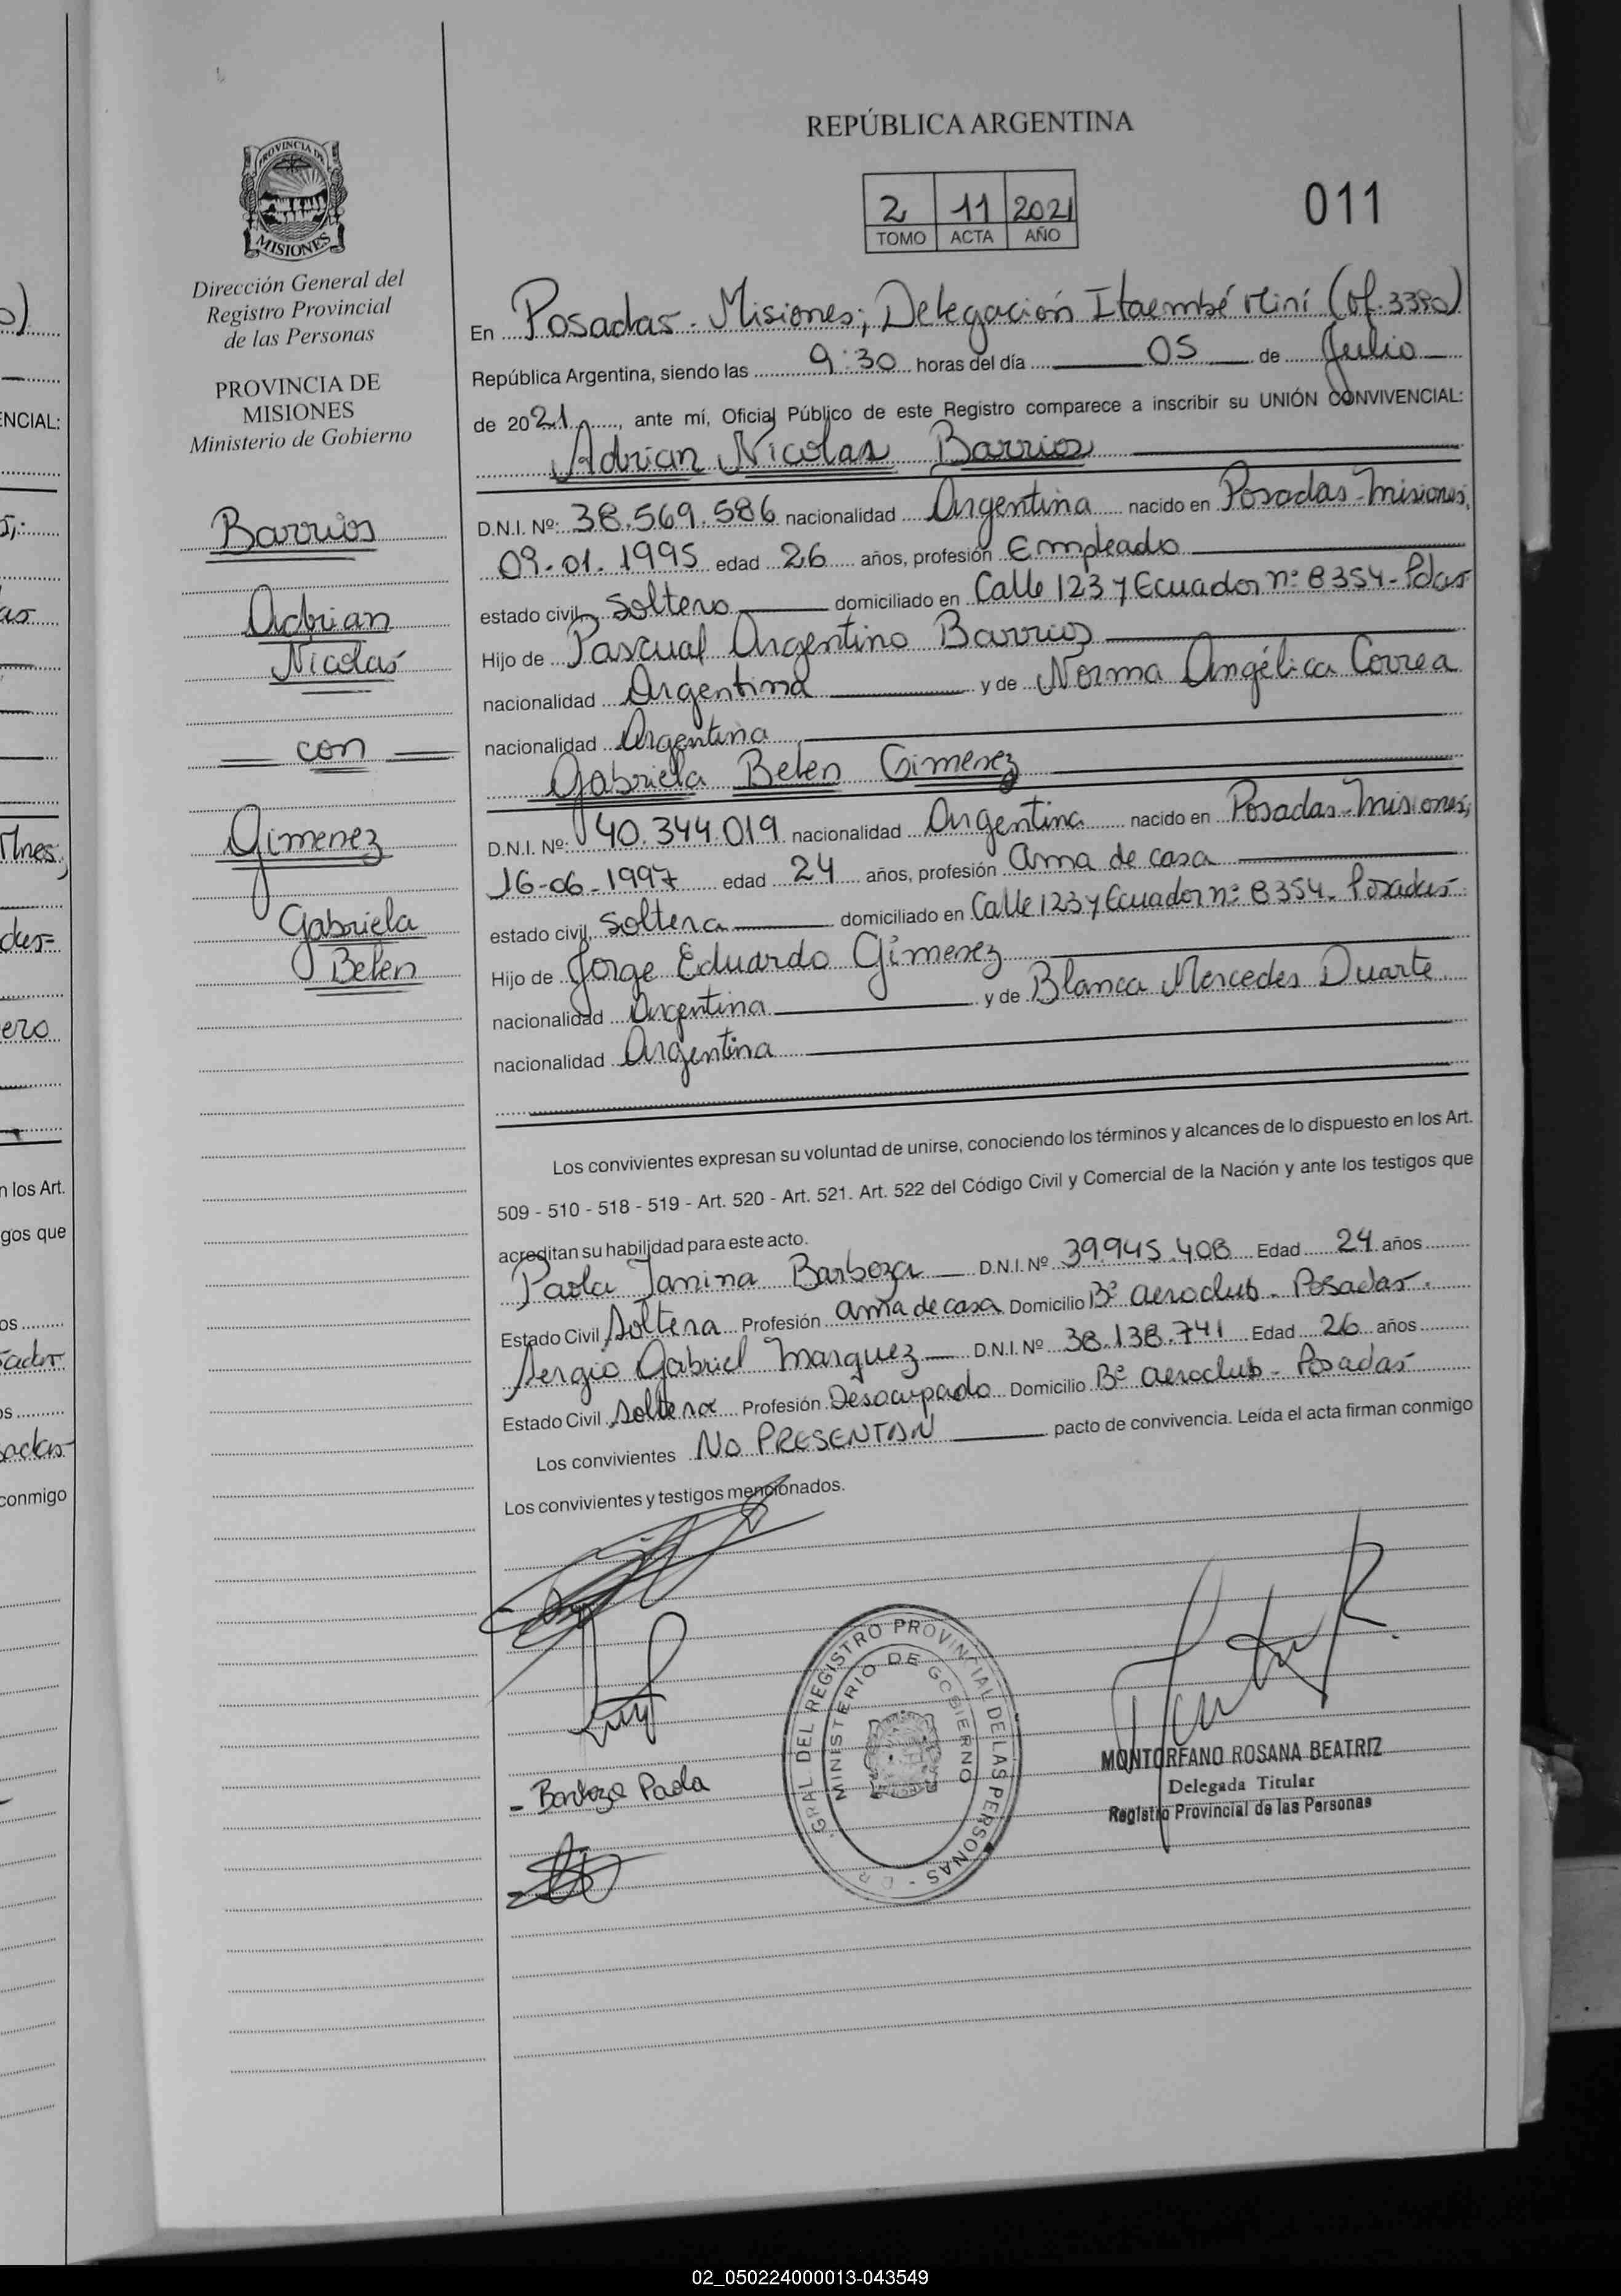 REPÚBLICA ARGENTINA
2 11 2021
TOMO ACTA AÑO
011
PROVINCIA DE
MISIONES
Dirección General del
Registro Provincial
de las Personas
PROVINCIA DE
MISIONES
Ministerio de Gobierno
Barrios
Adrian
Nicolas
con
Gimenez
Gabriela
Belen
En Posadas - Misiones; Delegación Itaembé Miní (Of. 3380)
República Argentina, siendo las 9:30 horas del día 05 de Julio
de 2021, ante mí, Oficial Público de este Registro comparece a inscribir su UNIÓN CONVIVENCIAL:
Adrian Nicolas Barrios
D.N.I. Nº: 38.569.586 nacionalidad Argentina nacido en Posadas - Misiones,
09-01-1995 edad 26 años, profesión Empleado
estado civil Soltero domiciliado en Calle 123 y Ecuador nº 8354 - Pdas
Hijo de Pascual Argentino Barrios
nacionalidad Argentina y de Norma Angélica Correa
nacionalidad Argentina
Gabriela Belen Gimenez
D.N.I. Nº: 40.344.019 nacionalidad Argentina nacido en Posadas - Misiones;
16-06-1997 edad 24 años, profesión ama de casa
estado civil, Soltera domiciliado en Calle 123 y Ecuador nº 8354 - Posadas
Hijo de Jorge Eduardo Gimenez
nacionalidad Argentina y de Blanca Mercedes Duarte
nacionalidad Argentina
Los convivientes expresan su voluntad de unirse, conociendo los términos y alcances de lo dispuesto en los Art.
509 - 510 - 518 - 519 - Art. 520 - Art. 521. Art. 522 del Código Civil y Comercial de la Nación y ante los testigos que
acreditan su habilidad para este acto.
Paola Janina Barboza D.N.I. Nº 39.945.408 Edad 24 años
Estado Civil Soltera Profesión ama de casa Domicilio Bº aeroclub - Posadas.
Sergio Gabriel Marquez D.N.I. Nº 38.138.741 Edad 26 años
Estado Civil Soltero Profesión Desocupado Domicilio Bº aeroclub - Posadas
Los convivientes NO PRESENTAN pacto de convivencia. Leída el acta firman conmigo
Los convivientes y testigos mencionados.
- Barboza Paola
GRAL DEL REGISTRO PROVINCIAL DE LAS PERSONAS
MINISTERIO DE GOBIERNO
MONTORFANO ROSANA BEATRIZ
Delegada Titular
Registro Provincial de las Personas
02_050224000013-043549